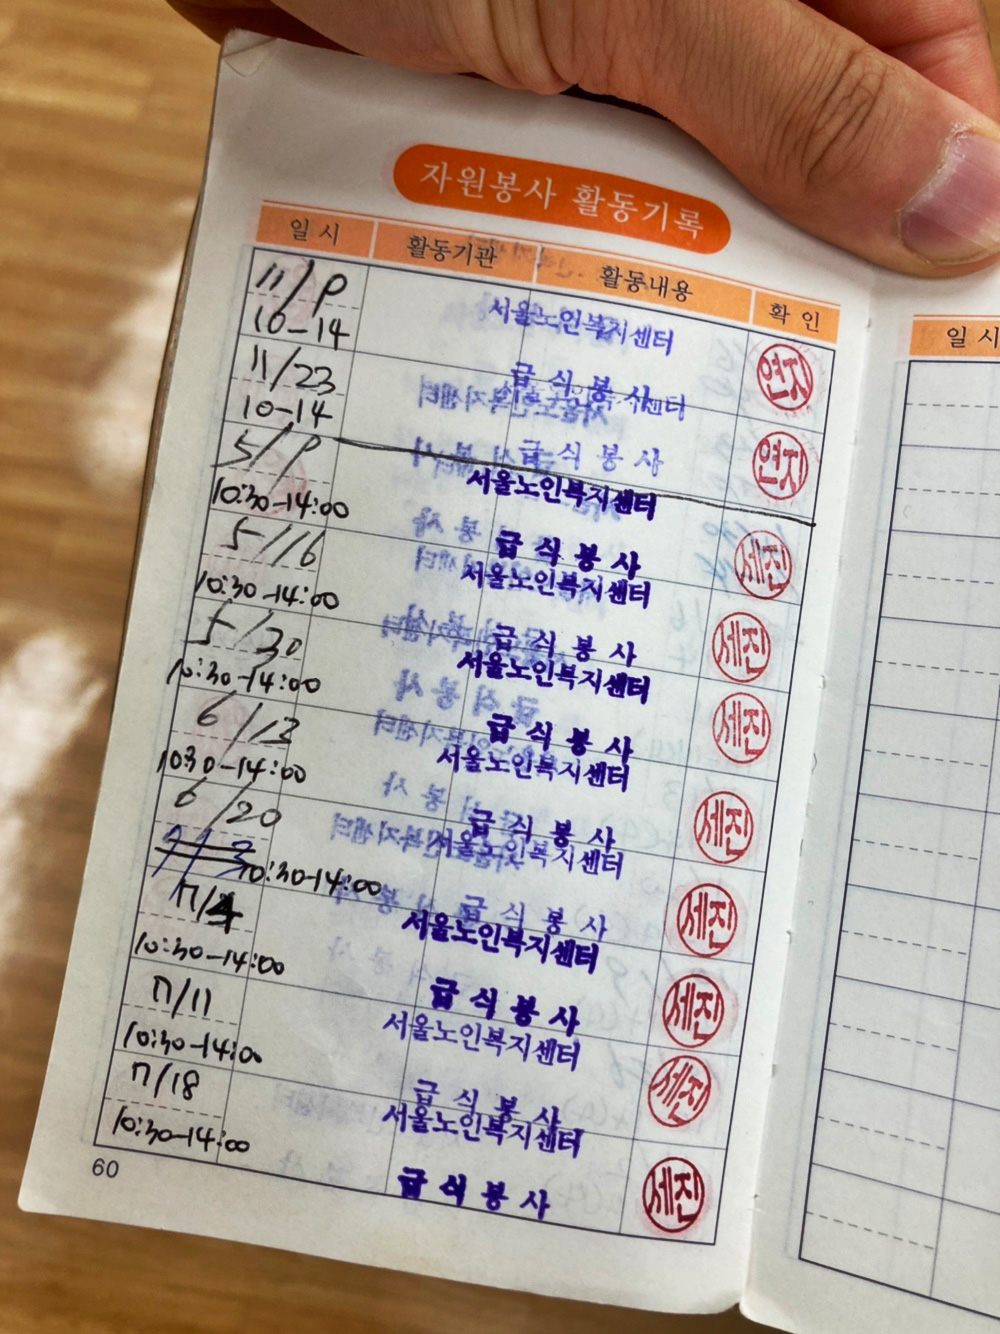 자원봉사 활동기록
일 시 활동기관 활동내용 확 인
11/9
서울노인복지센터
10-14
급 식 봉 사
연지
11/23
서울노인복지센터
10-14
급 식 봉 사
연지
5/9
서울노인복지센터
10:30-14:00
급 식 봉 사
세진
5/16
서울노인복지센터
10:30-14:00
급 식 봉 사
세진
5/30
서울노인복지센터
10:30-14:00
급 식 봉 사
세진
6/13
서울노인복지센터
1030-14:00
급 식 봉 사
세진
6/20
서울노인복지센터
10:30-14:00
급 식 봉 사
세진
7/4
서울노인복지센터
10:30-14:00
급 식 봉 사
세진
7/11
서울노인복지센터
10:30-14:00
급 식 봉 사
세진
7/18
서울노인복지센터
10:30-14:00
급 식 봉 사
세진
60
일 시